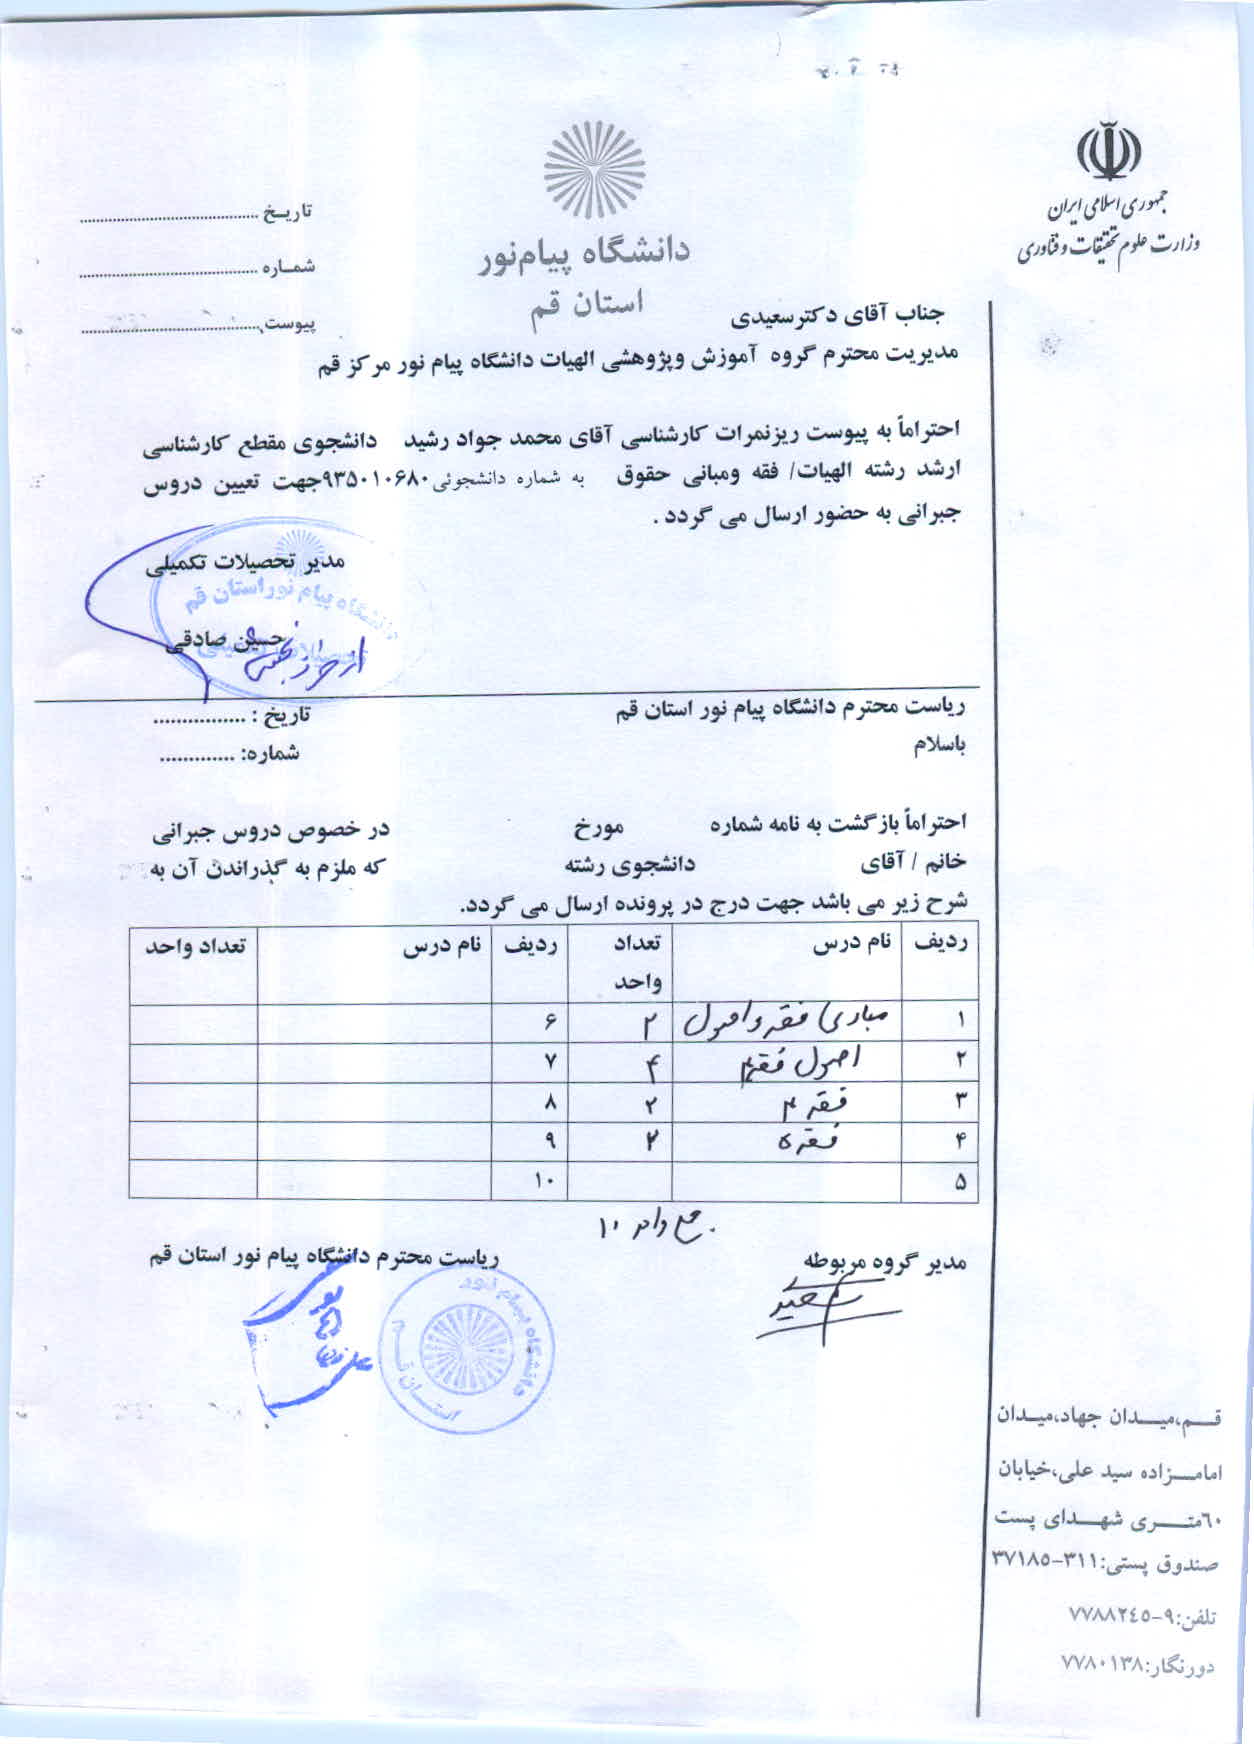 جمهوری اسلامی ایران
وزارت علوم تحقیقات و فناوری
دانشگاه پیام‌نور
استان قم
تاریـخ ........................................
شمـاره ........................................
پیوست ........................................
جناب آقای دکترسعیدی
مدیریت محترم گروه آموزش وپژوهشی الهیات دانشگاه پیام نور مرکز قم
احتراماً به پیوست ریزنمرات کارشناسی آقای محمد جواد رشید دانشجوی مقطع کارشناسی
ارشد رشته الهیات/ فقه ومبانی حقوق به شماره دانشجوئی۹۳۵۰۱۰۶۸۰جهت تعیین دروس
جبرانی به حضور ارسال می گردد .
مدیر تحصیلات تکمیلی
دانشگاه پیام نور استان قم
حسین صادقی
ریاست محترم دانشگاه پیام نور استان قم
تاریخ : ................
باسلام
شماره: .............
احتراماً بازگشت به نامه شماره مورخ در خصوص دروس جبرانی
خانم / آقای دانشجوی رشته که ملزم به گذراندن آن به
شرح زیر می باشد جهت درج در پرونده ارسال می گردد.
ردیف نام درس تعداد واحد ردیف نام درس تعداد واحد
۱ مبادی فقه و اصول ۲ ۶
۲ اصول فقه ۴ ۷
۳ فقه ۴ ۲ ۸
۴ فقه ۵ ۲ ۹
۵ ۱۰
جمع واحد ۱۰
مدیر گروه مربوطه ریاست محترم دانشگاه پیام نور استان قم
سعیدی
دانشگاه پیام نور
استان قم
قــم،میــدان جهاد،میـدان
امامــزاده سید علی،خیابان
٦٠متــری شهــدای پست
صندوق پستی:۳۱۱-۳۷۱۸۵
تلفن:۹-۷۷۸۸۲٤۵
دورنگار:۷۷۸۰۱۳۸